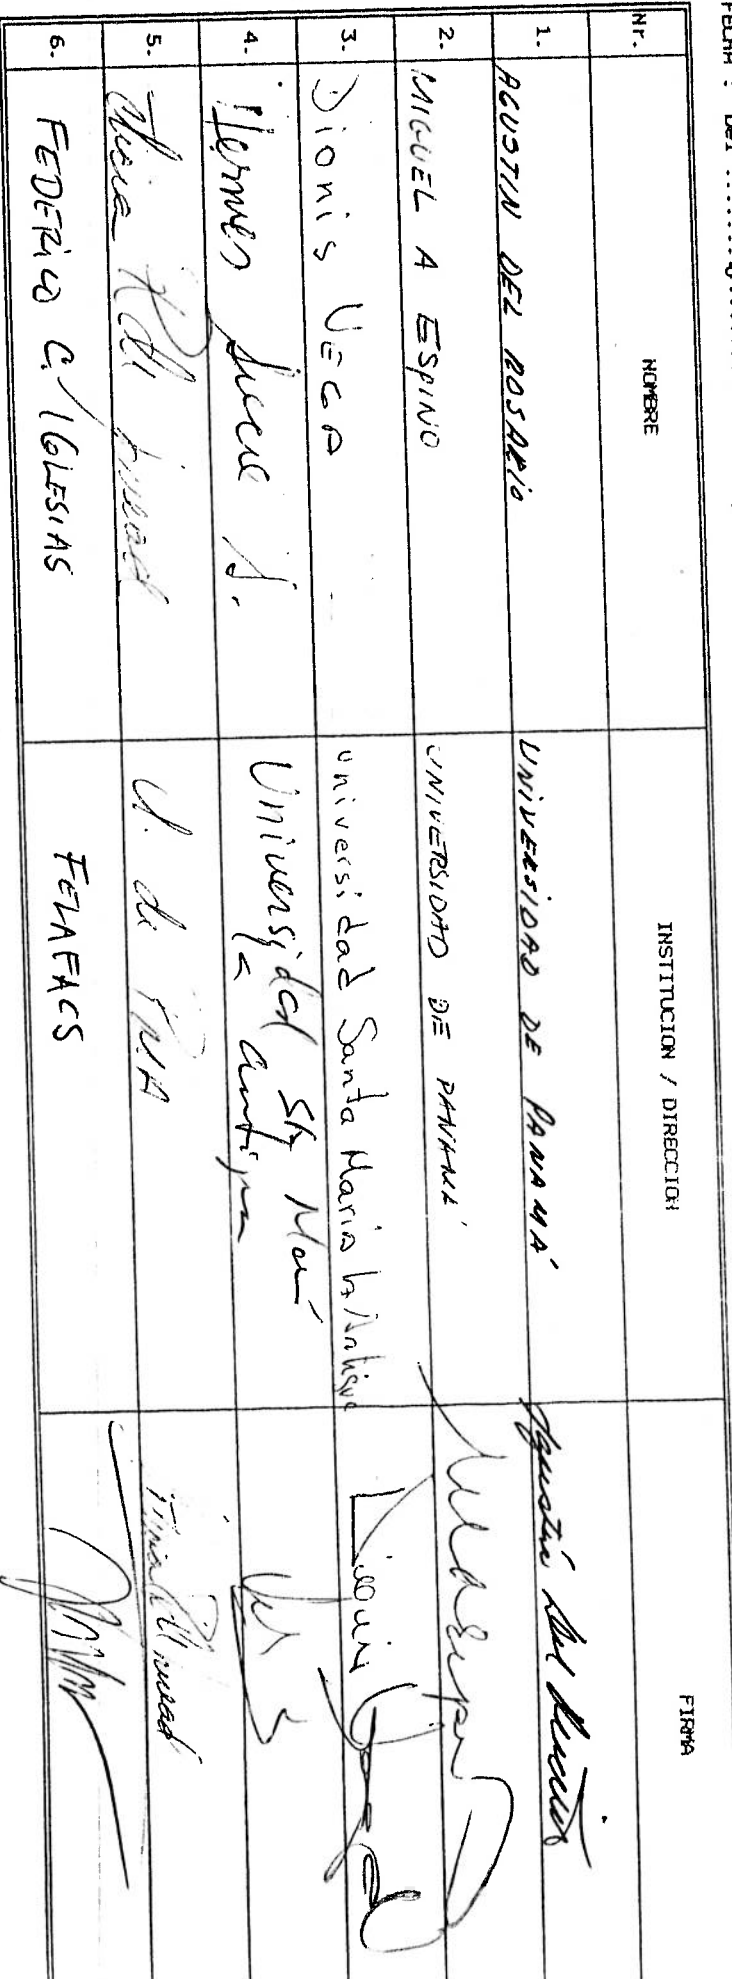 FECHA : Del
Nr. NOMBRE INSTITUCION / DIRECCION FIRMA
1. AGUSTIN DEL ROSARIO UNIVERSIDAD DE PANAMÁ Agustín Del Rosario
2. MIGUEL A ESPINO UNIVERSIDAD DE PANAMÁ
3. Dionis VEGA Universidad Santa Maria la Antigua
4. Hermes Sucre S. Universidad Sta María
La Antigua
5. U. de PNA
6. FEDERICO C. IGLESIAS FELAFACS